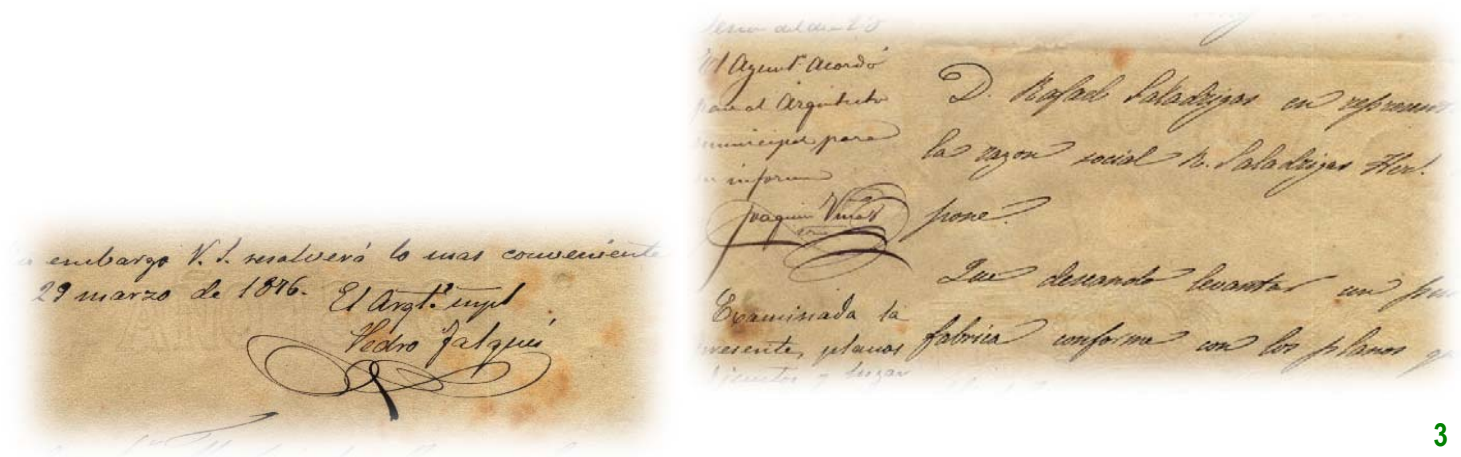 embargo V. S. resolverá lo mas conveniente
29 marzo de 1876. El Arqt.º mpl
Pedro Falqués
El Ayunt.º Acordó
pase al Arquitecto
municipal para
su informe
Joaquin Viñas
Examinada la
presente, planos
D. Rafael Saladrigas en represent
la razon social R. Saladrigas Her.
pone
Que deseando levantar un
fabrica conforme con los planos
3